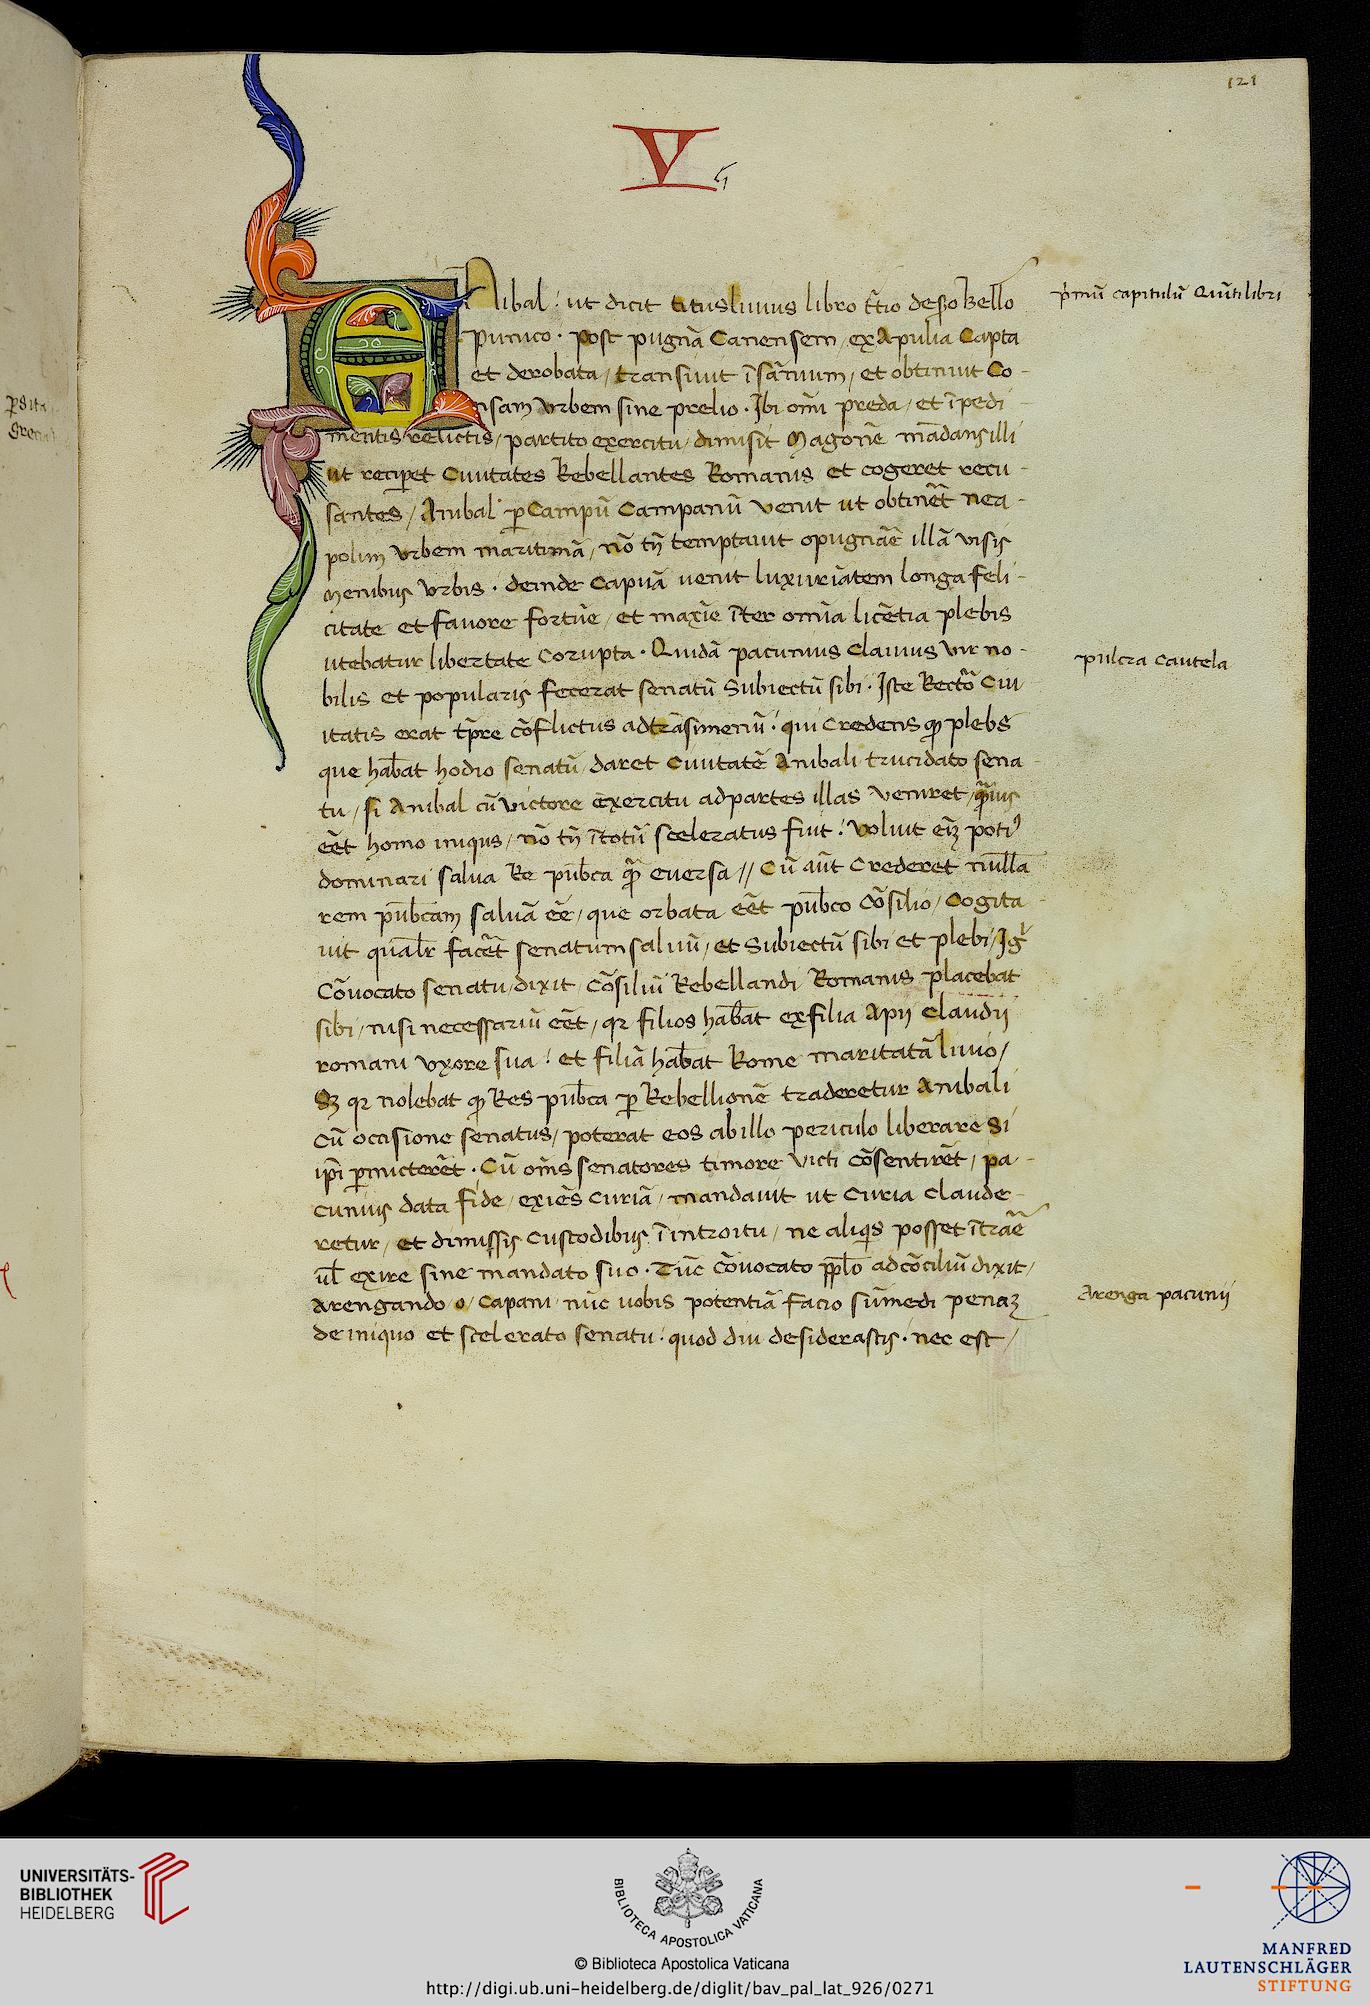 121
V
Anibal ut dicit tituslivius libro t̄tio de ſc̄do bello
p̄mū capitulū Quītilibri
punico · post pugnā Canensem / ex Apulia Capta
et derobata / transivit ī sānium / et obtinuit Co-
nsam vrbem sine prelio · Ibi om̄i preda / et īpedi-
mentis relictis / partito exercitu / dimisit Magonē mādans illi
ut reciꝑet Civitates Rebellantes Romanis et cogeret recu-
santes / Anibal ꝑ Campū Campanū venit ut obtinēt nea-
polim vrbem maritimā / nō tn̄ temptavit opugnāē illā visis
menibus vrbis · deinde Capuā venit luxuriātem longa feli-
citate et favore fortūe / et maxīe īter omīa licētia plebis
utebatur libertate Corupta · Quidā pacuvius Clavius vir no-
pulcra Cautela
bilis et popularis fecerat senatū Subiectū sibi · Iste Rectōr Civi
itatis erat tp̄re cōflictus ad trāsimenū · qui Credens ꝙ plebs
que hab̄at hodio senatū / daret Civitatē Anibali trucidato sena-
tu / si Anibal cū victore exercitu ad partes illas veniret / qāvis
eēt homo iniqus / nō tn̄ ītotū sceleratus fuit · Voluit eīꝫ poti9
dominari salva Re pub̄ca qā̄ eversa // Cū aūt Crederet nulla
rem pub̄cam salvā eē / que orbata eēt pub̄co cōsilio / Cogita-
vit qual̄r facēt senatum salvū / et Subiectū sibi et plebi / Igr̄
Cōvocato senatu / dixit / Cōsiliū Rebellandi Romanis placebat
sibi / nisi necessariū eēt / qr filios hab̄at ex filia Apij Claudij
romani vxore sua · et filiā hab̄at Rome maritatā livio /
Sꝫ qr nolebat ꝙ Res pub̄ca ꝑ Rebellionē traderetur Anibali
Cū occisione senatus / poterat eos ab illo periculo liberare Si
ip̄i ꝑmicterēt · Cū om̄s senatores timore victi cōsentirēt / pa-
cuvius data fide / exiēs Curiā / mandavit ut Curia Claude-
retur / et dimissis Custodibus ī introitu / ne aliqis posset ītrāē
ul̄ exire sine mandato suo · Tūc cōvocato pp̄lo ad cōciliū dixit /
Arengando o / Capani nūc vobis potentiā facio sūmedi penaꝫ
Arenga pacuvij
de iniquo et scelerato senatu · quod diu desiderastis · nec est /
UNIVERSITÄTS-
BIBLIOTHEK
HEIDELBERG
BIBLIOTECA APOSTOLICA VATICANA
© Biblioteca Apostolica Vaticana
http://digi.ub.uni-heidelberg.de/diglit/bav_pal_lat_926/0271
MANFRED
LAUTENSCHLÄGER
STIFTUNG